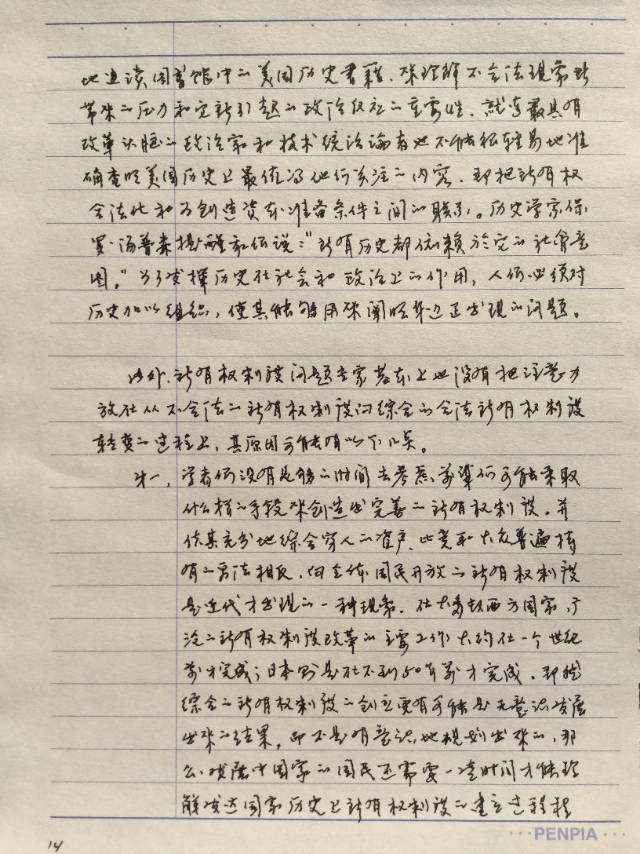 地追读图书馆中的美国历史书籍，来理解不合法现象所
带来的压力和它所引起的政治反应的重要性，就连最具有
改革头脑的政治家和技术统治论者也不能很轻易地准
确查明美国历史上最值得他们关注的内容，即把所有权
合法化和为创造资本准备条件之间的联系。历史学家保
罗·汤普森提醒我们说："所有历史都依赖於它的社会意
图。"为了发挥历史在社会和政治上的作用，人们必须对
历史加以组织，使其能够用来阐明身边正出现的问题。
此外，所有权制度问题专家基本上也没有把注意力
放在从不合法的所有权制度向综合的合法所有权制度
转变的过程上，其原因可能有以下几点。
第一，学者们没有足够的时间去考虑，前辈们可能采取
什么样的手段来创造出完善的所有权制度，并
使其充分地综合穷人的资产。此类和大众普遍持
有的看法相反，向全体国民开放的所有权制度
是近代才出现的一种现象。在大多数西方国家，广
泛的所有权制度改革的主要工作大约在一个世纪
前才完成；日本则是在不到50年前才完成。即然
综合的所有权制度的创立更有可能是无意识发展
出来的结果，而不是有意识地规划出来的，那
么，发展中国家的国民还需要一定时间才能理
解发达国家历史上所有权制度的建立过程
14
PENPIA